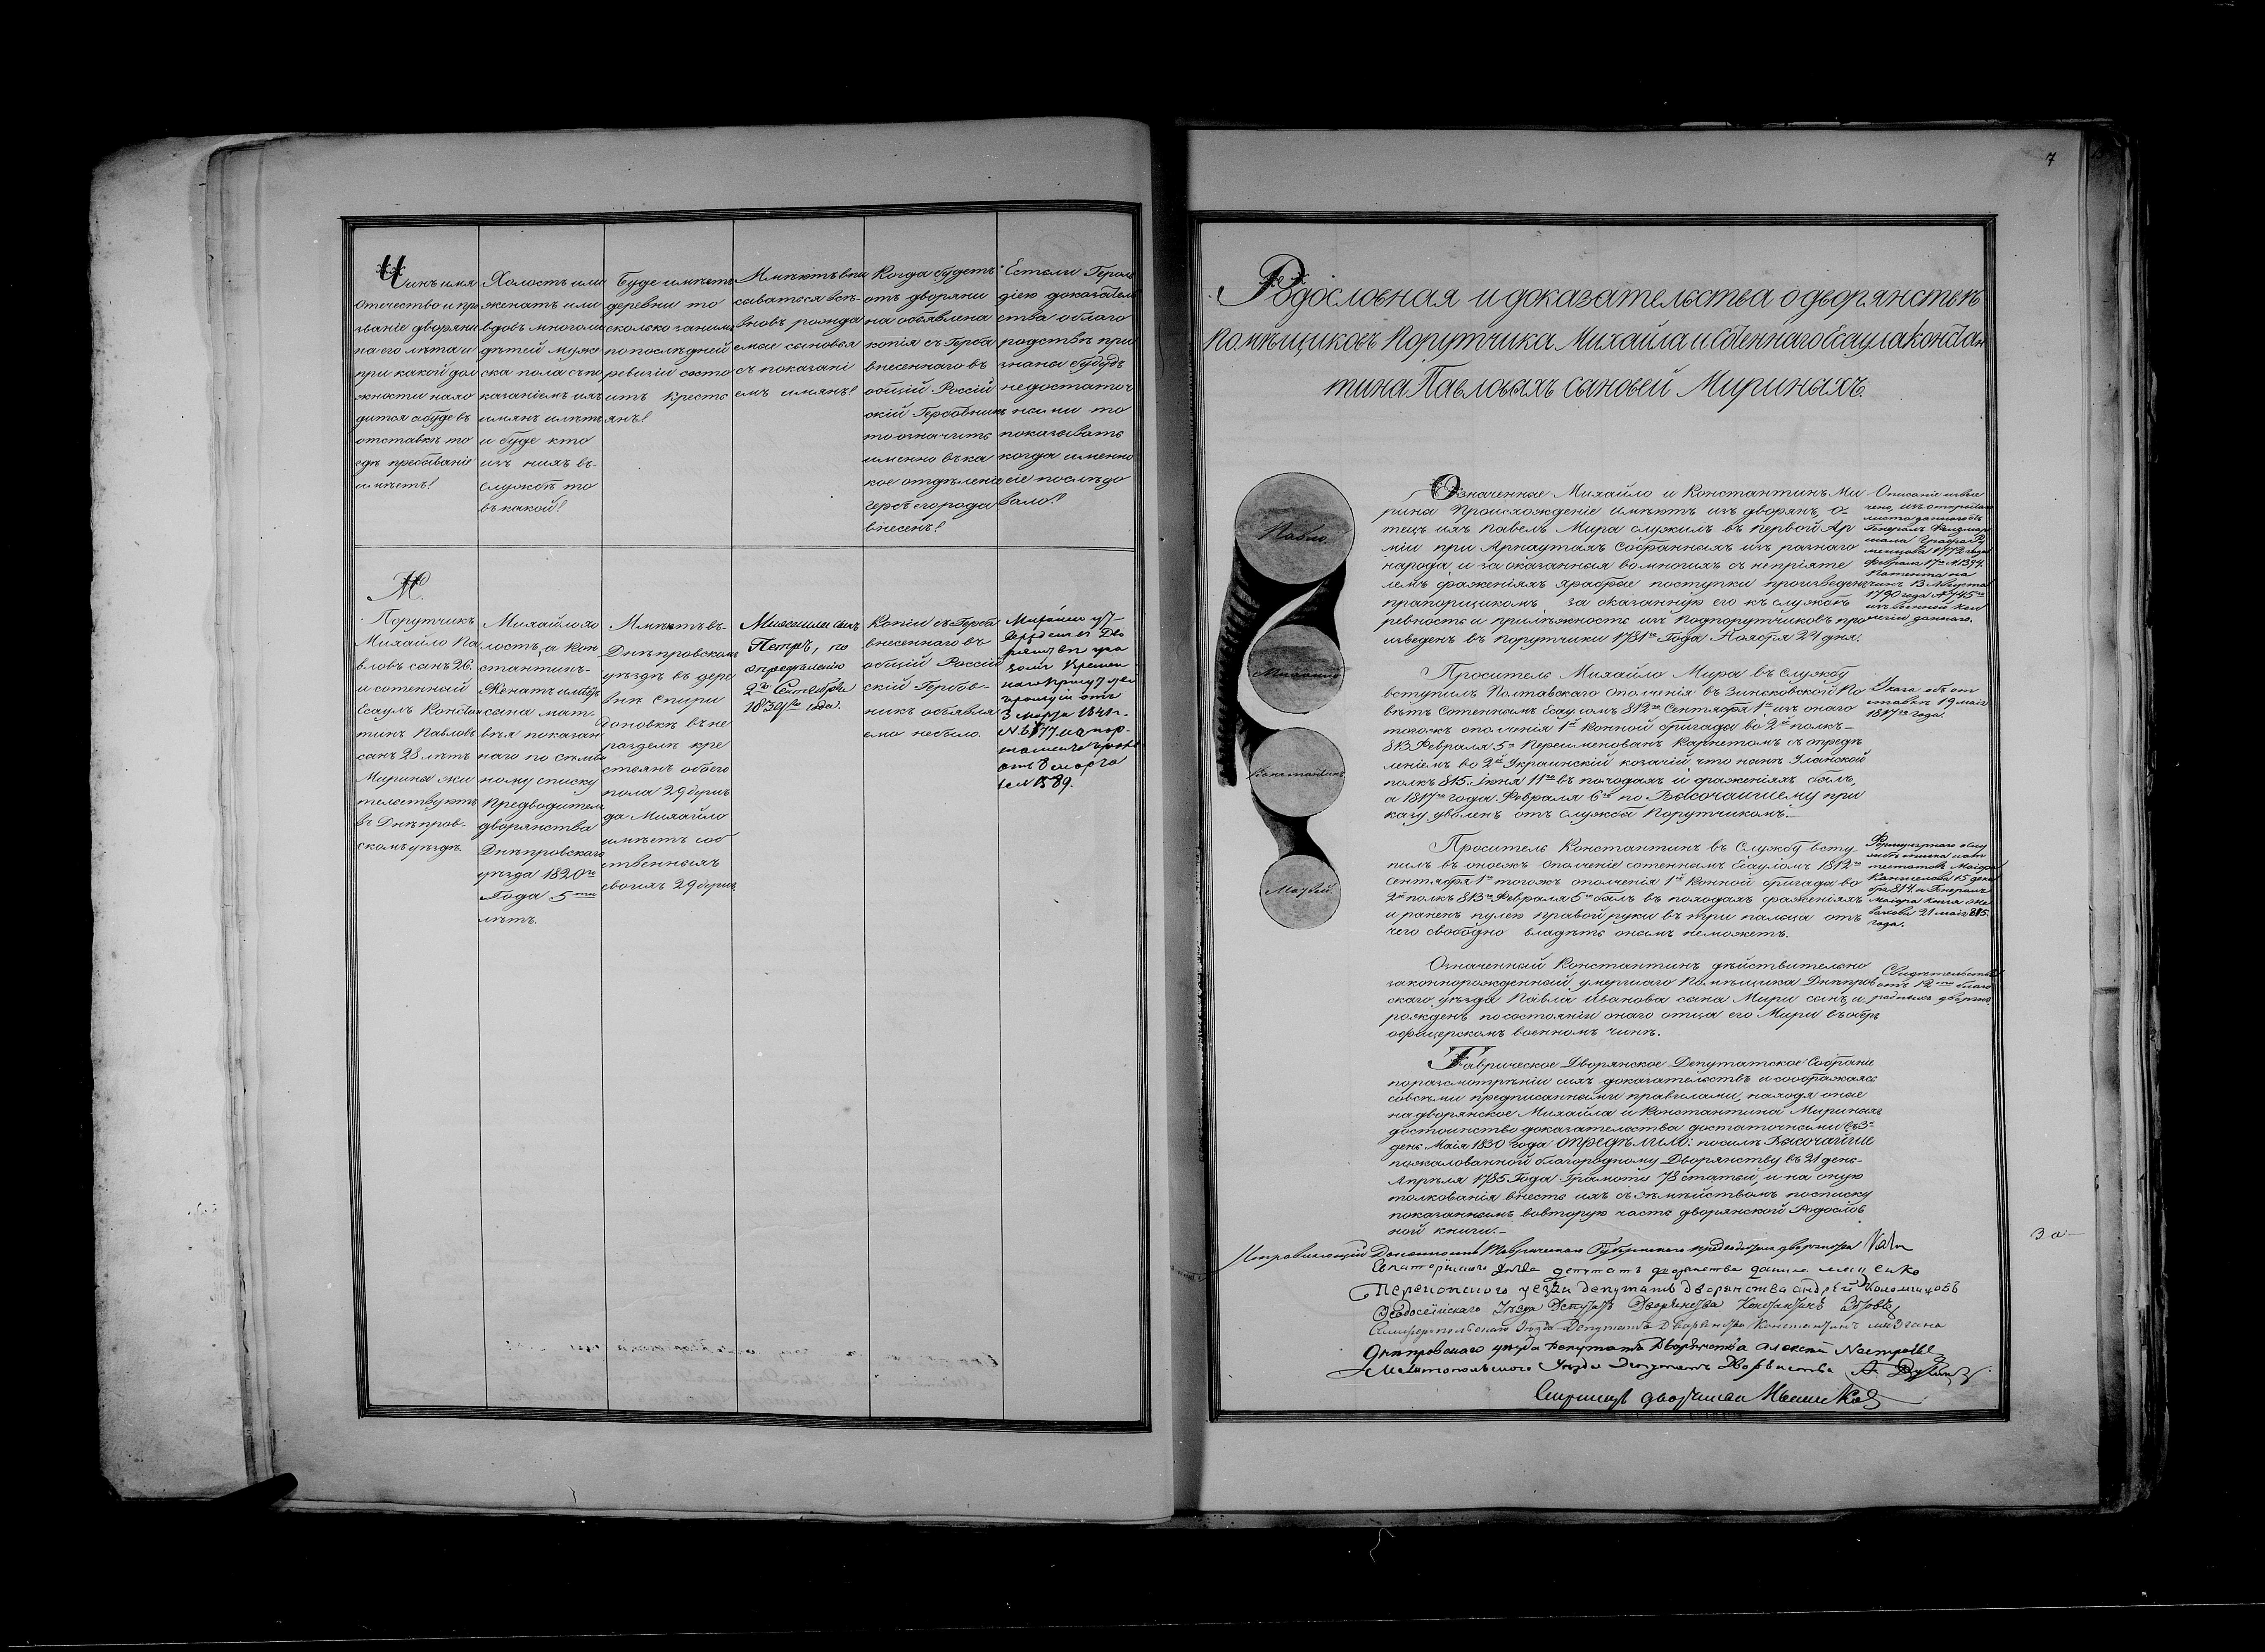 Чинъ имя
отечество и про
званіе дворяни
на его лѣта и
при какой дол
жности нахо
дится а буде въ
отставкѣ то
гдѣ пребываніе
имѣетъ?
Холостъ или
женатъ или
вдовъ многоли
дѣтей муже
ска пола съ по
казаніемъ ихъ
имянъ и лѣтъ
и буде кто
изъ нихъ въ
службѣ то
въ какой?
Буде имѣетъ
деревни то
сколько за нимъ
по послѣдней
ревизіи состо
итъ кресть
янъ?
Имѣютъ впи
сываться всѣ
вновь рожда
емые сыновья
съ показані
емъ имянъ?
Когда будетъ
отъ дворяни
на объявлена
копія съ Герба
внесеннаго въ
общій Россій
скій Гербовникъ
то означить
именно въ ка
кое отдѣленіе
гербъ его рода
внесенъ?
Естьли Героль
діею доказатель
ства о благо
родствѣ при
знаны будутъ
недостаточ
ными то
показывать
когда именно
сіе послѣдо
вало?
М.
Порутчикъ
Михайло Па
вловъ сынъ 26.
и сотенный
Есаулъ Констан
тинъ Павловъ
сынъ 28 лѣтъ
Мирины жи
тельствуютъ
въ Днѣпров-
скомъ уѣздѣ
Михайло хо
лостъ, а Кон
стантинъ-
Женатъ имѣетъ
сына Мат-
вѣя показан
наго по сѣмей
ному списку
Предводителя
дворянства
Днѣпровскаго
уѣзда 1820го
Года 5ти
лѣтъ.
Имѣютъ въ-
Днѣпровскомъ
уѣздѣ въ дере
внѣ Спири
доновкѣ въ не
раздѣлѣ кре
стьянъ обоего
пола 29 душъ
да Михайло
имѣетъ соб
ственныхъ
своихъ 29 душъ.
Михаила сынъ
Петръ, по
опредѣленію
2го Сентября
1839го года.
Копіи съ Герба
внесеннаго въ
общій Россій
скій Гербов-
никъ объявля
емо небыло.
3 марта 1841 г.
отъ 8 марта
7
Родословная и доказательства о дворянствѣ
Помѣщиковъ Порутчика Михайла и Сотеннаго Есаула Констан
тина Павловыхъ сыновей Мириныхъ.
Павло.
Михайло
Константинъ
Матвѣй.
Означенные Михайло и Константинъ Ми
рины Происхожденіе имѣютъ изъ дворянъ, о-
тецъ ихъ Павелъ Мира служилъ въ первой Ар
міи при Арнаутахъ Собранныхъ изъ разнаго
народа, и за оказанныя во многихъ съ непріяте
лемъ сраженіяхъ храбрые поступки произведенъ
прапорщикомъ, за оказанную его къ службѣ
ревность и прилѣжность изъ Подпорутчиковъ про
изведенъ въ порутчики 1781го Года Ноября 24 дня.
Описаніе извле
чено, изъ открытаго
листа даннаго отъ
Генералъ Фельдмар
шала Графа Ру
менцова 1772 года
Февраля 17го № 1394.
Патента на
чинъ 13 Августа
1790 года № 745го
изъ военной кол
легіи даннаго.
Проситель Михайло Мира въ Службу
вступилъ Полтавскаго ополченія въ Зинковской По
вѣтъ Сотеннымъ Есауломъ 812го Сентября 1го изъ онаго
тогожъ ополченія 1й Конной бригады во 2й полкъ-
813. Февраля 5го Переименованъ Карнетомъ съ опредѣ
леніемъ во 2й Украинскій козачій что нынѣ Уланской
полкъ 815. Іюня 11го въ походахъ и сраженіяхъ былъ,
а 1817го года Февраля 6го по Высочайшему при
казу уволенъ отъ службы Порутчикомъ.
Указа объ от
ставкѣ 19 маія
1817го года.
Проситель Константинъ въ Службу всту
пилъ въ оноежъ ополченіе сотеннымъ Есауломъ 1812го
Сентября 1го тогожъ ополченія 1й Конной бригады во
2й полкъ 813го Февраля 5го былъ въ походахъ сраженіяхъ
и раненъ пулею правой руки въ три пальца отъ
чего свободно владѣть онымъ неможетъ.
Означенный Константинъ дѣйствительно
законнорожденный умершаго Помѣщика Днѣпров
скаго уѣзда Павла Иванова сына Мири сынъ, и
рожденъ по состояніи онаго отца его Мири въ оберъ
офицерскомъ военномъ чинѣ.
Свидѣтельства
отъ 12ти благо
родныхъ дворянъ.
Таврическое Дворянское Депутатское Собраніе
по разсмотрѣніи сихъ доказательствъ и соображаясь
совсѣми предписанными правилами, находя оные
на дворянское Михайла и Константина Мириныхъ
достоинство доказательства достаточными въ 3й
день Маія 1830 года опредѣлило: посилѣ Высочайше
пожалованной благородному Дворянству въ 21 день
Апрѣля 1785 Года Грамоты 78 статьи, и на оную
толкованія внесть ихъ съ сѣмѣйствомъ по списку
показаннымъ во вторую часть дворянской Родослов
ной книги.-
Исправляющій Должность Таврическаго Губернскаго предводителя дворянства
Евпаторійскаго уѣзда депутатъ дворянства
Перекопскаго уезда депутатъ дворянства андрей Коломійцовъ
Феодосійскаго Уѣзда Депутатъ Дворянства Константинъ
Симферопольскаго Уѣзда Депутатъ Дворянства Константинъ
Днѣпровскаго уѣзда Депутатъ Дворянства Алексѣй
Мелитопольскаго Уѣзда Депутатъ Дворянства
Секретарь дворянства